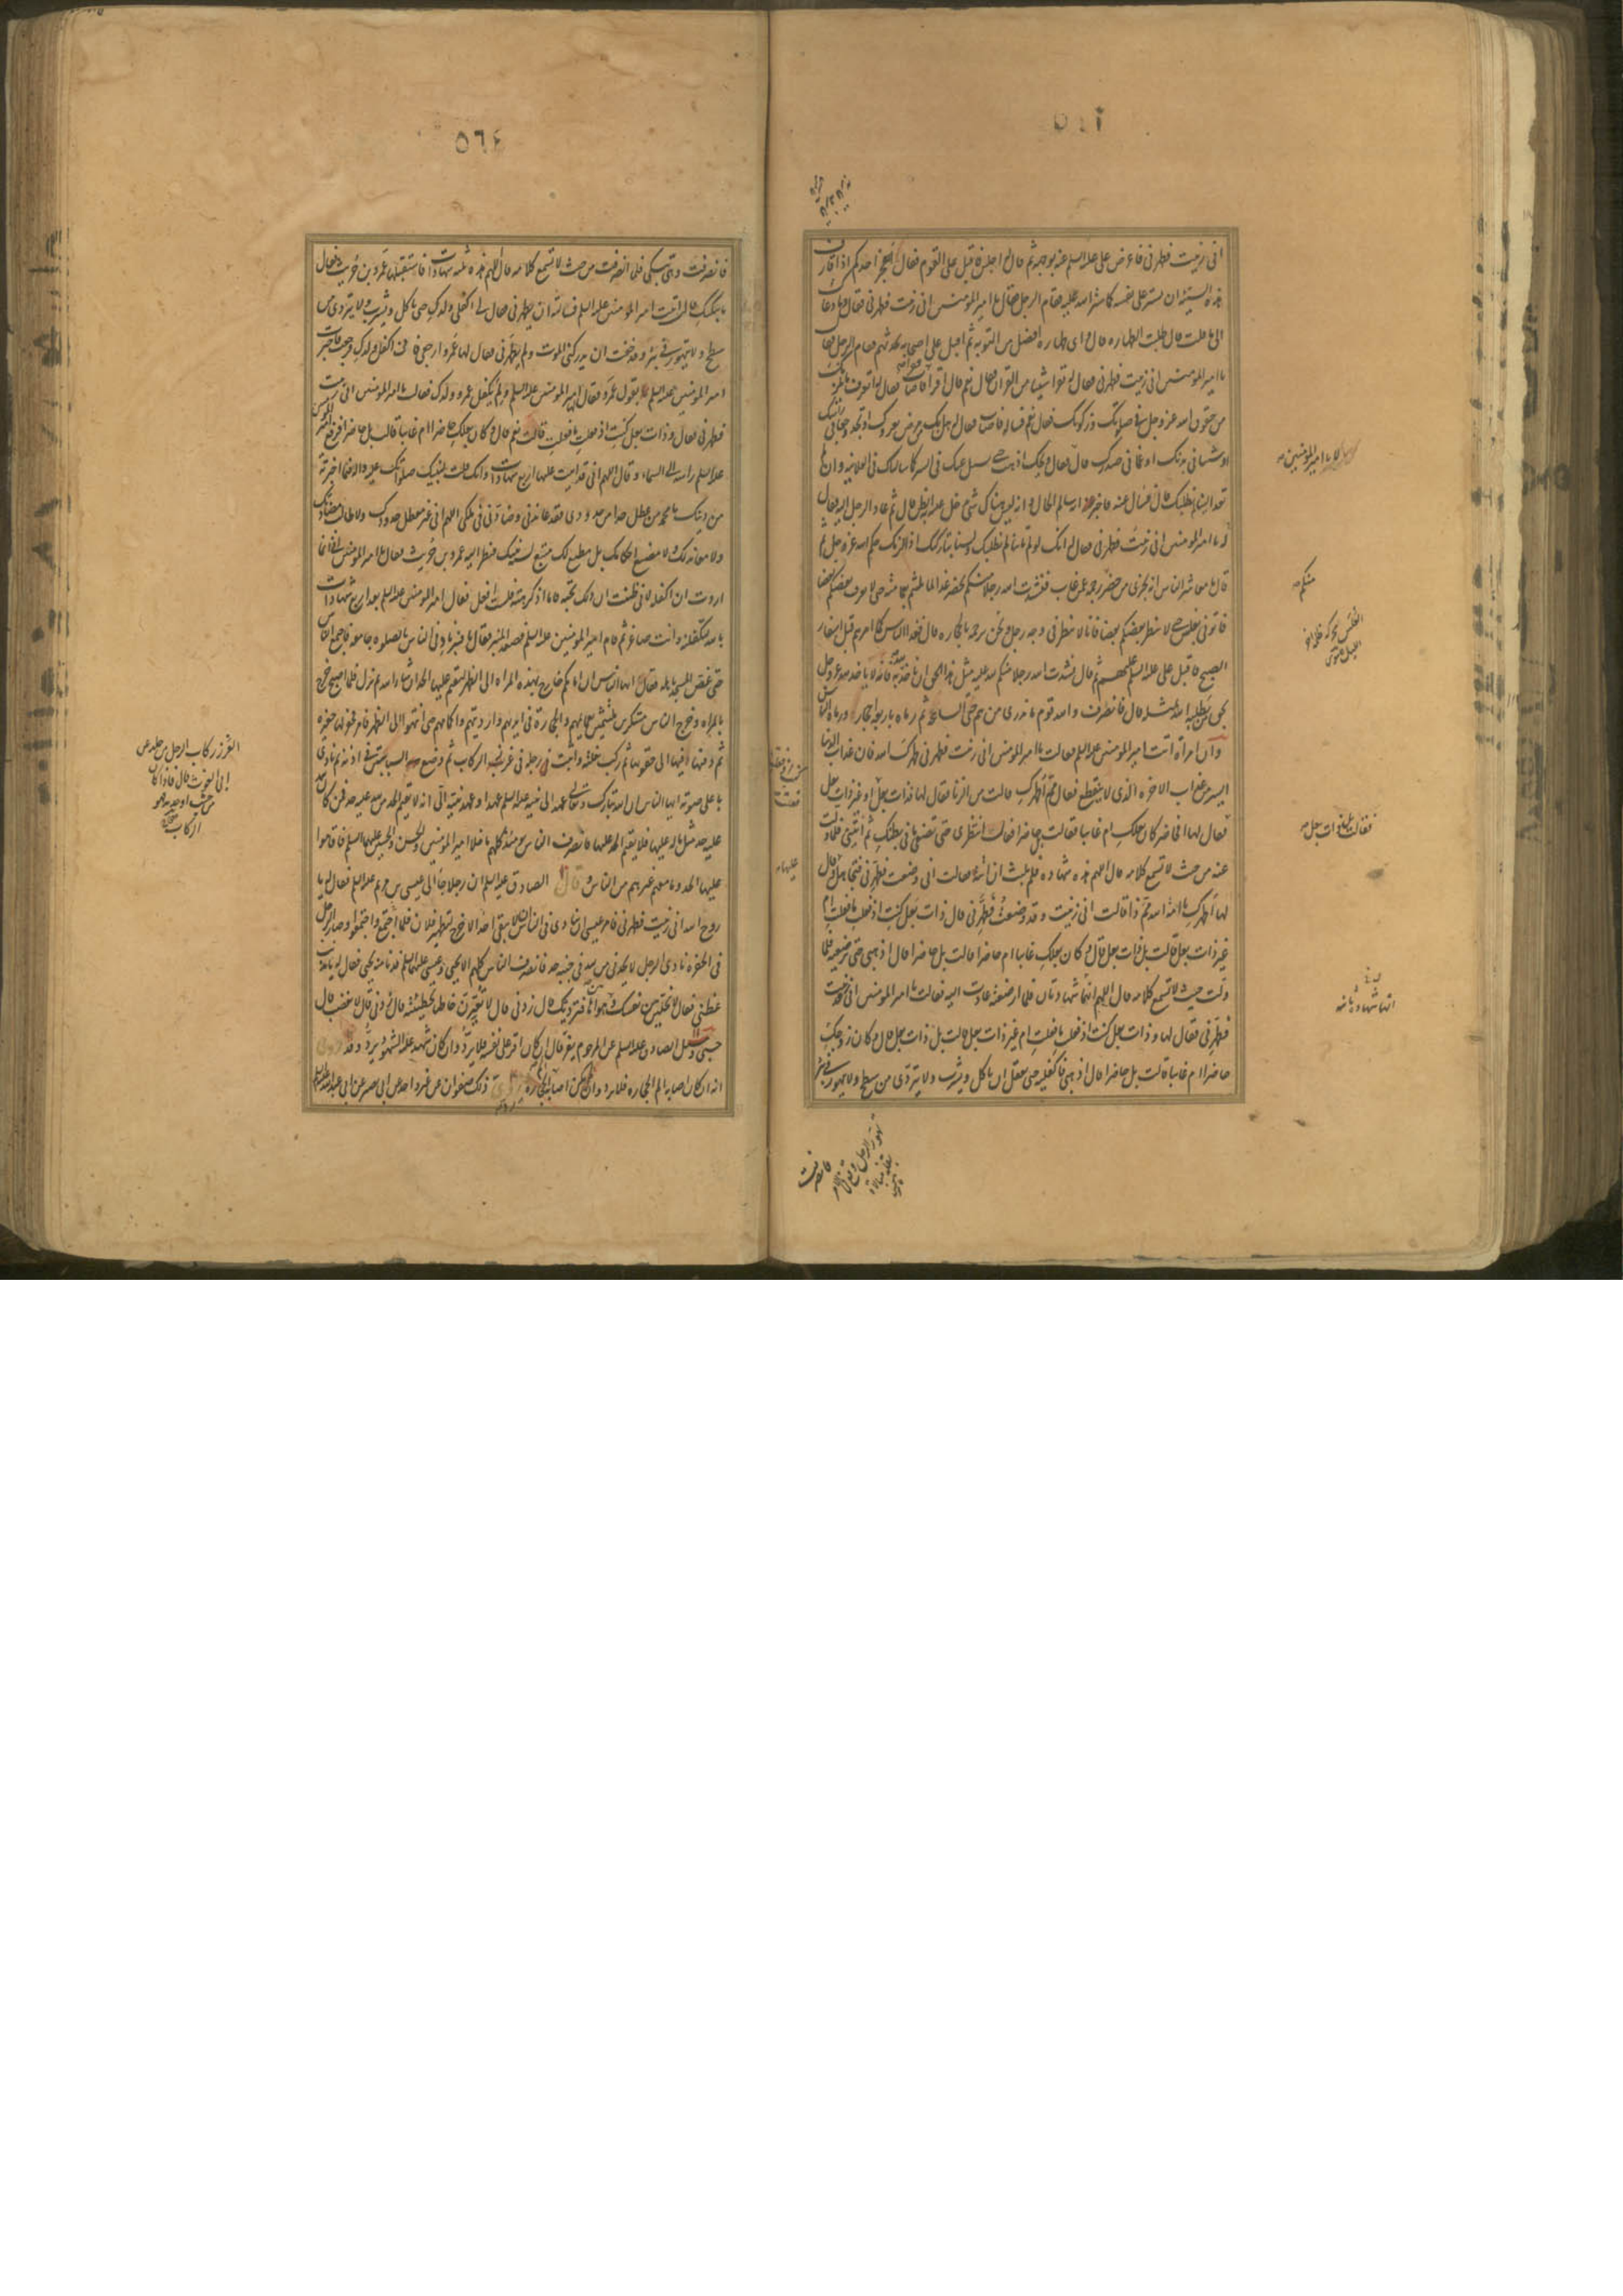 انى زنيت فطهرنى فاعرض على عليه السلم عنه بوجهه ثم قال له اجلس فاقبل على القوم فقال ايعجز احدكم اذا قارف
هذه السيئة ان يستر على نفسه كما ستر الله عليه فقام الرجل فقال يا امير المؤمنين انى زنيت فطهرنى فقال وما دعاك
الى ما قلت قال طلب الطهارة قال واى طهارة افضل من التوبة ثم اقبل على اصحابه يحدثهم فقام الرجل فقال
يا امير المؤمنين انى زنيت فطهرنى فقال له تقرا شيئا من القران قال نعم قال اقرا فاصاب فقال له اتعرف ما يلزمك
من حقوق الله عز وجل فى صلوتك وزكوتك فقال نعم فساله فاصاب فقال له هل بك من مرض يعروك او تجد وجعا فى راسك
او شيئا فى بدنك او غما فى صدرك قال لا فقال ويحك اذهب حتى نسال عنك فى السر كما سالناك فى العلانية فان لم
تعد الينا لم نطلبك قال فسال عنه فاخبر انه سالم الحال وانه ليس هناك شىء يدخل عليه به الظن قال ثم عاد الرجل اليه فقال
له يا امير المؤمنين انى زنيت فطهرنى فقال له انك لو لم تاتنا لم نطلبك ولسنا بتاركيك اذ لزمك حكم الله عز وجل ثم
قال يا معاشر الناس انه يجزى من حضر رجمه عمن غاب فنشدت الله رجلا منكم يحضر غدا لما تلثم بعمامته حتى لا يعرف بعضكم بعضا
فاتونى بغلس حتى لا ينظر بعضكم بعضا فانا لا ننظر فى وجه رجل ونحن نرجمه بالحجارة قال فغدا الناس كما امرهم قبل اسفار
الصبح فاقبل على عليه السلم عليهم ثم قال نشدت الله رجلا منكم لله عليه مثل هذا الحق ان ياخذ لله به فانه لا ياخذ لله عز وجل
بحق من يطلبه الله بمثله قال فانصرف والله قوم ما ندرى من هم حتى الساعة ثم رماه باربعة احجار ورماه الناس
وان امراة اتت امير المؤمنين عليه السلم فقالت يا امير المؤمنين انى زنيت فطهرنى طهرك الله فان عذاب الدنيا
ايسر من عذاب الاخرة الذى لا ينقطع فقال مم اطهرك قالت من الزنا فقال لها فذات بعل او غير ذات بعل
فقال لها افحاضر كان بعلك ام غايبا فقالت بل حاضر فقال انتظرى حتى تضعى ما فى بطنك ثم ائتينى فلما ولت
عنه من حيث لا تسمع كلامه قال اللهم هذه شهادة فلم تلبث ان اتته فقالت انى وضعت فطهرنى فتجاهل وقال
لها اطهرك يا امة الله مم ذا قالت انى زنيت وقد وضعت فطهرنى قال وذات بعل كنت اذ فعلت ما فعلت ام
غير ذات بعل قالت بل ذات بعل قال وكان بعلك غايبا ام حاضرا قالت بل حاضرا قال اذهبى حتى ترضعيه فلما
ولت حيث لا تسمع كلامه قال اللهم انهما شهادتان فلما ارضعته عادت اليه فقالت يا امير المؤمنين انى زنيت
فطهرنى فقال لها وذات بعل كنت اذ فعلت ما فعلت ام غير ذات بعل قالت بل ذات بعل قال وكان زوجك
حاضرا ام غايبا قالت بل حاضرا قال اذهبى فاكفليه حتى يعقل ان ياكل ويشرب ولا يتردى من سطح ولا يتهور فى بئر
فانصرفت
يا امير المؤمنين
منكم
فقالت بل ذات بعل
عليها
٥٦٤
فانصرفت وهى تبكى فلما انصرفت من حيث لا تسمع كلامه قال اللهم هذه ثلث شهادات فاستقبلها عمرو بن حريث فقال
ما يبكيك قالت اتيت امير المؤمنين عليه السلم فسالته ان يطهرنى فقال لى اكفلى ولدك حتى ياكل ويشرب ولا يتردى من
سطح ولا يتهور فى بئر وقد خفت ان يدركنى الموت ولم يطهرنى فقال لها عمرو ارجعى فانى اكفل ولدك فرجعت فاخبرت
امير المؤمنين عليه السلم بقول عمرو فقال امير المؤمنين عليه السلم ولم يكفل عمرو ولدك فقالت يا امير المؤمنين انى زنيت
فطهرنى فقال وذات بعل كنت اذ فعلت ما فعلت قالت نعم قال وكان بعلك حاضرا ام غايبا قالت بل حاضرا فرفع امير المؤمنين
عليه السلم راسه الى السماء وقال اللهم انى قد اثبت عليها اربع شهادات وانك قلت لنبيك صلواتك عليه واله فيما اخبرته
من دينك يا محمد من عطل حدا من حدودى فقد عاندنى وضادنى فى ملكى اللهم انى غير معطل حدودك ولا طالب مضادتك
ولا معاندتك ولا مضيع احكامك بل مطيع لك متبع لسنة نبيك فنظر اليه عمرو بن حريث فقال يا امير المؤمنين انى انما
اردت ان اكفله لانى ظننت ان ذلك تحبه فاما اذ كرهته فلست افعل فقال امير المؤمنين عليه السلم بعد اربع شهادات
بالله لتكفلنه وانت صاغر ثم قام امير المؤمنين عليه السلم فصعد المنبر فقال يا قنبر ناد فى الناس الصلوة جامعة فاجتمع الناس
حتى غص المسجد باهله فقال ايها الناس ان امامكم خارج بهذه المراة الى الظهر ليقيم عليها الحد ان شاء الله ثم نزل فلما اصبح خرج
بالمراة وخرج الناس متنكرين متلثمين بعمايمهم والحجارة فى ايديهم وارديتهم واكمامهم حتى انتهوا الى الظهر فامر فحفر لها حفيرة
ثم دفنها فيها الى حقويها ثم ركب بغلته واثبت رجله فى غرز الركاب ثم وضع يديه السبابتين فى اذنيه ثم نادى
باعلى صوته ايها الناس ان الله تبارك وتعالى عهد الى نبيه عليه السلم عهدا وعهد نبيه الى انه لا يقيم الحد من لله عليه حد فمن كان لله
عليه حد مثل ما له عليها فلا يقيم الحد عليها فانصرف الناس يومئذ كلهم ما خلا امير المؤمنين والحسن والحسين عليهما السلم فاقاموا
عليها الحد وما معهم غيرهم من الناس وقال الصادق عليه السلم ان رجلا جاء الى عيسى بن مريم عليه السلم فقال له يا
روح الله انى زنيت فطهرنى فامر عيسى ان ينادى فى الناس ان لا يبقى احد الا خرج لتطهير فلان فلما اجتمع واجتمعوا وصار الرجل
فى الحفرة نادى الرجل لا يحدنى من لله فى جنبه حد فانصرف الناس كلهم الا يحيى وعيسى عليهما السلم فدنا منه يحيى فقال له يا مذنب
عظنى فقال لا تخلين بين نفسك وهواها فترديك قال زدنى قال لا تعيرن خاطئا بخطيئته قال زدنى قال لا تغضب قال
حسبى وسئل الصادق عليه السلم عن المرجوم يفر قال ان كان اقر على نفسه فلا يرد وان كان شهد عليه الشهود يرد وقد روى
انه ان كان اصابه الم الحجارة فلا يرد وان لم يكن اصابه الم الحجارة رد روى ذلك صفوان عن غير واحد عن ابى بصير عن ابى عبد الله عليه السلم